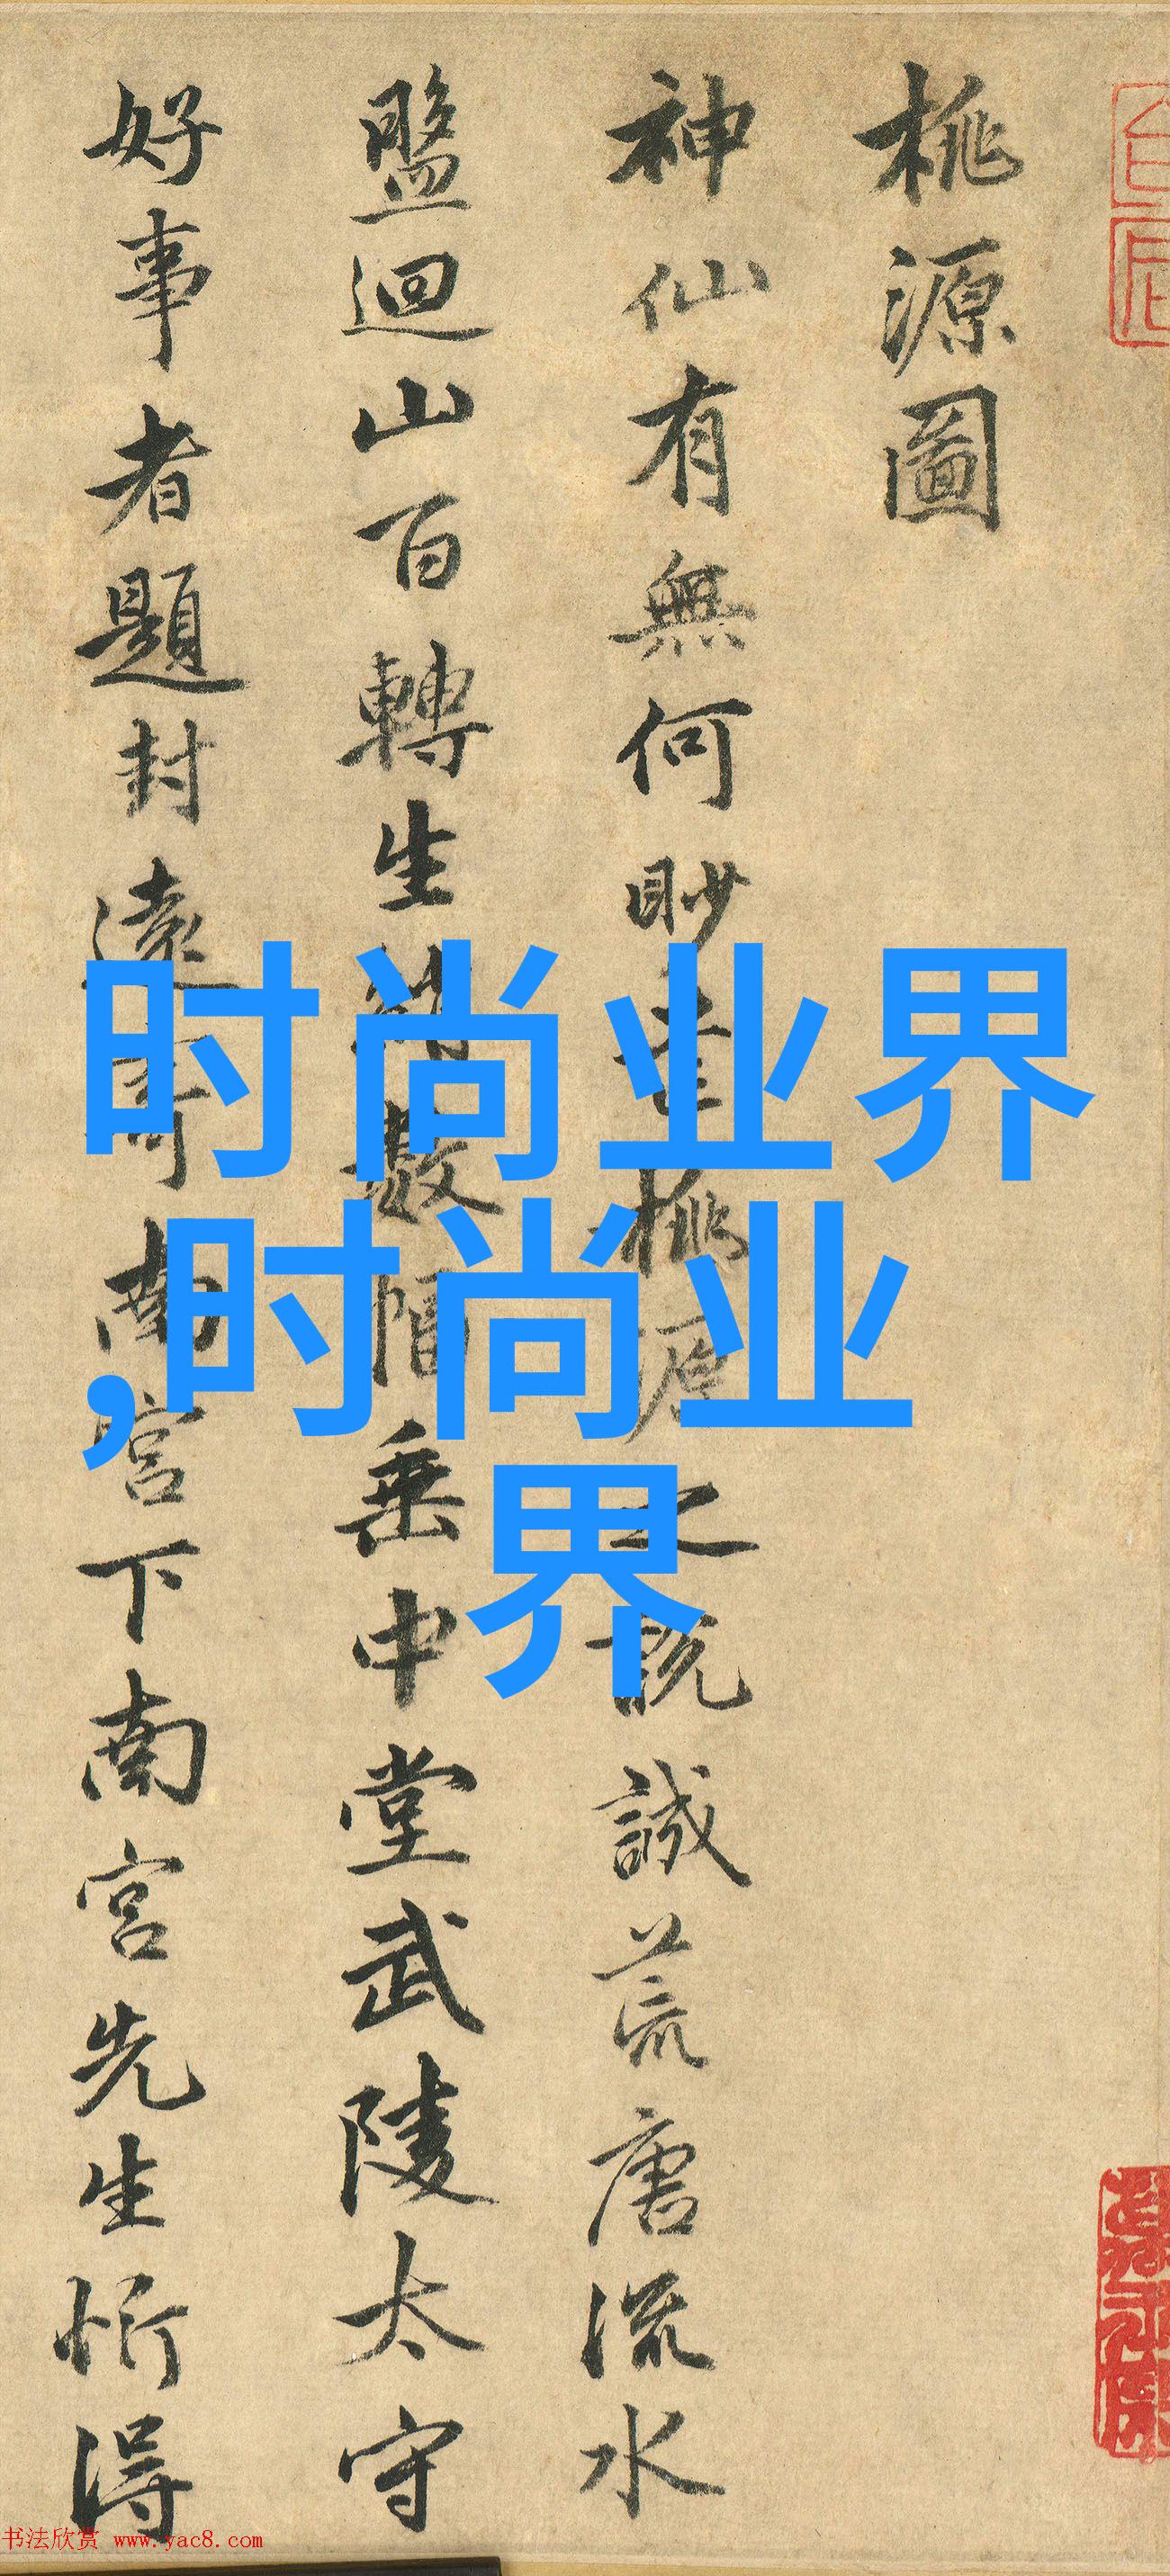 桃源圖
神仙有無何眇茫桃源之說誠荒唐流水
盤迴山百轉生綃數幅垂中堂武陵太守
好事者題封遠寄南宮下南宮先生忻得
时尚业界
,时尚业
界
书法欣赏 www.yac8.com